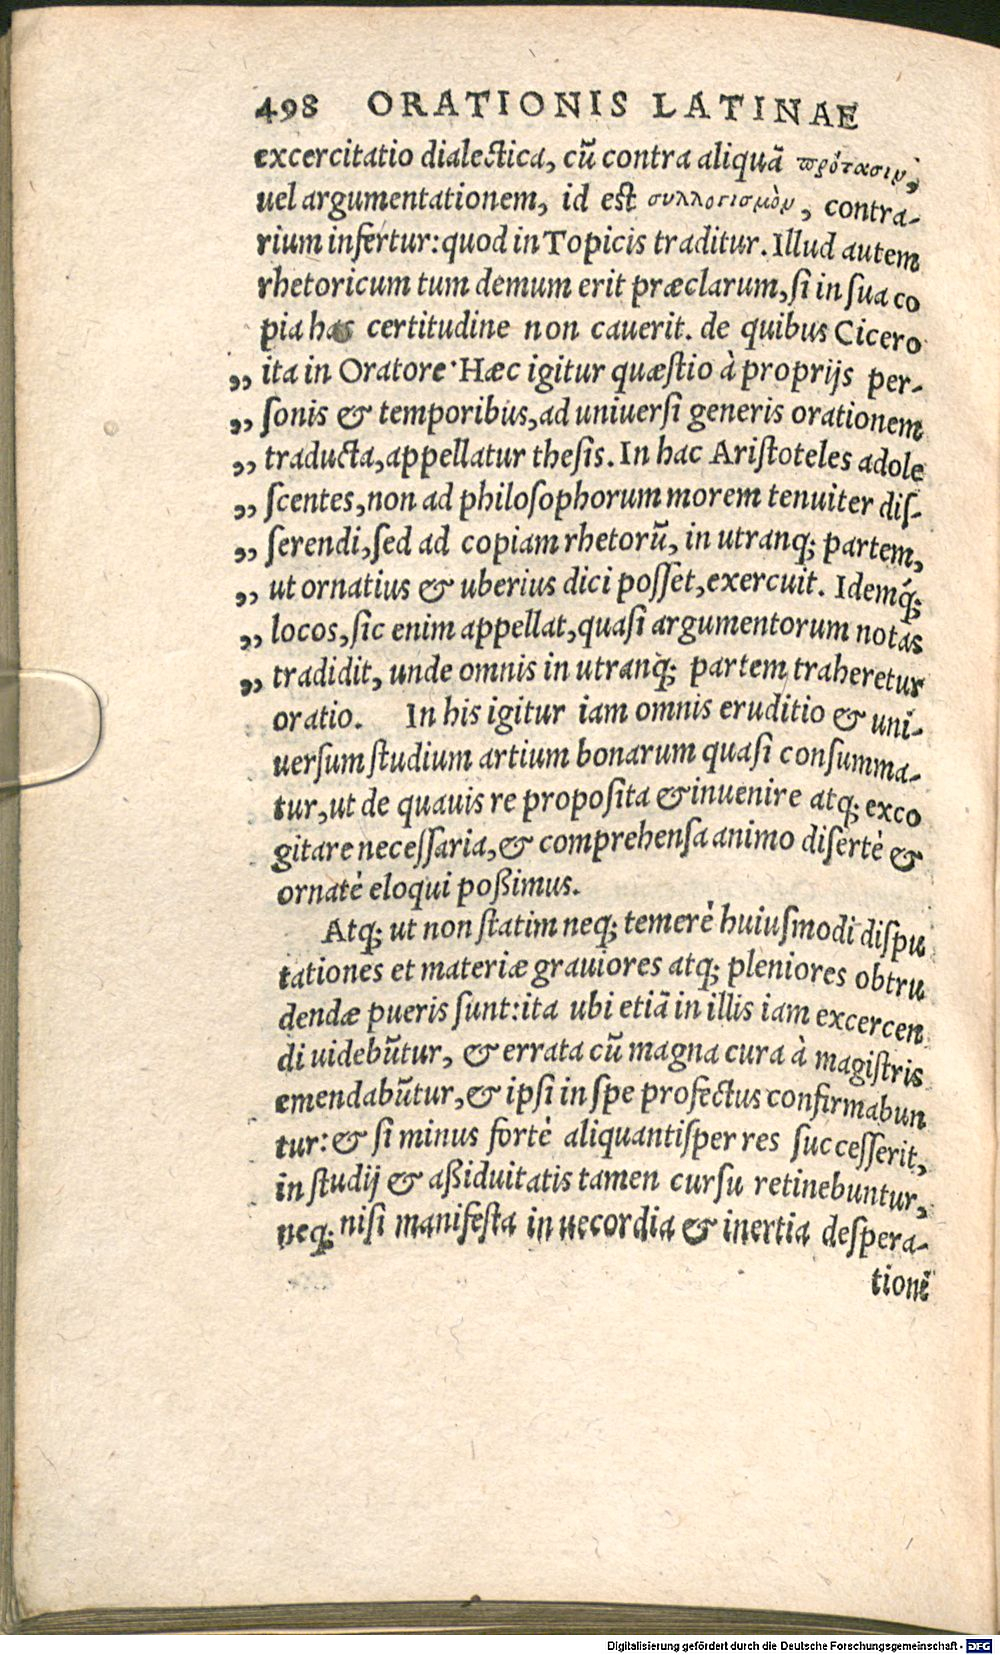 498 ORATIONIS LATINAE
excercitatio dialectica, cũ contra aliquã πρότασιν,
uel argumentationem, id est συλλογισμὸν, contra-
rium infertur: quod in Topicis traditur. Illud autem
rhetoricum tum demum erit præclarum, si in sua co
pia has certitudine non cauerit. de quibus Cicero
„ ita in Oratore· Hæc igitur quæstio à proprijs per-
„ sonis & temporibus, ad uniuersi generis orationem
„ traducta, appellatur thesis. In hac Aristoteles adole
„ scentes, non ad philosophorum morem tenuiter dis-
„ serendi, sed ad copiam rhetorũ, in utranq; partem,
„ ut ornatius & uberius dici posset, exercuit. Idemq́;
„ locos, sic enim appellat, quasi argumentorum notas
„ tradidit, unde omnis in utranq; partem traheretur
oratio. In his igitur iam omnis eruditio & uni-
uersum studium artium bonarum quasi consumma-
tur, ut de quauis re proposita & inuenire atq; exco
gitare necessaria, & comprehensa animo disertè &
ornatè eloqui poßimus.
Atq; ut non statim neq; temerè huiusmodi dispu
tationes et materiæ grauiores atq; pleniores obtru
dendæ pueris sunt: ita ubi etiã in illis iam excercen
di uidebũtur, & errata cũ magna cura à magistris
emendabũtur, & ipsi in spe profectus confirmabun
tur: & si minus fortè aliquantisper res successerit,
in studij & aßiduitatis tamen cursu retinebuntur,
neq; nisi manifesta in uecordia & inertia despera-
tionẽ
Digitalisierung gefördert durch die Deutsche Forschungsgemeinschaft - DFG